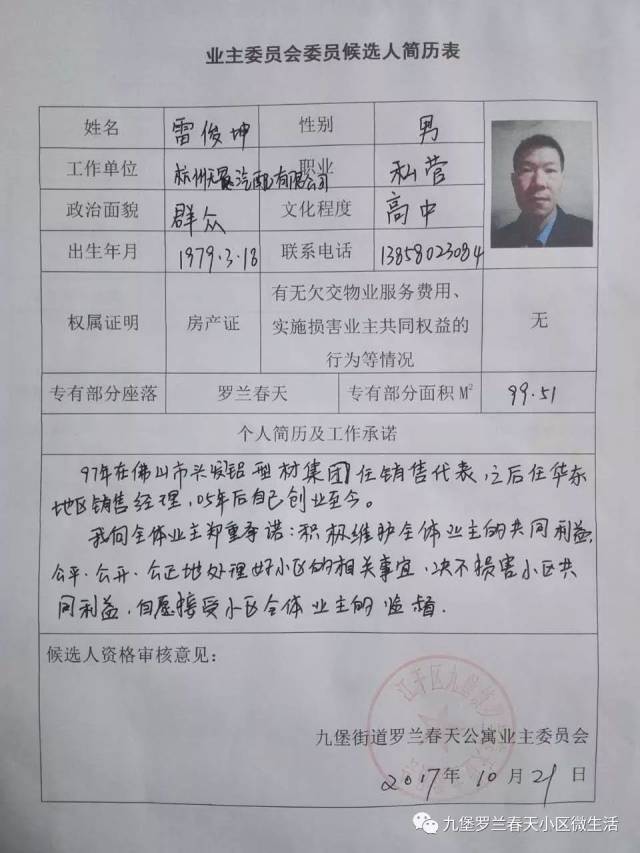 业主委员会委员候选人简历表
姓名 雷俊坤 性别 男
工作单位 杭州天 汽配有限公司 职业 私营
政治面貌 群众 文化程度 高中
出生年月 1979.3.18 联系电话 13858023084
有无欠交物业服务费用、
权属证明 房产证 实施损害业主共同权益的 无
行为等情况
专有部分座落 罗兰春天 专有部分面积M² 99.51
个人简历及工作承诺
97年在佛山市兴发铝型材集团任销售代表,之后任华东
地区销售经理,05年后自己创业至今。
我向全体业主郑重承诺:积极维护全体业主的共同利益,
公平、公开、公正地处理好小区的相关事宜,决不损害小区共
同利益,自愿接受小区全体业主的监督.
候选人资格审核意见:
江干区九堡街
九堡街道罗兰春天公寓业主委员会
2017年10月21日
九堡罗兰春天小区微生活